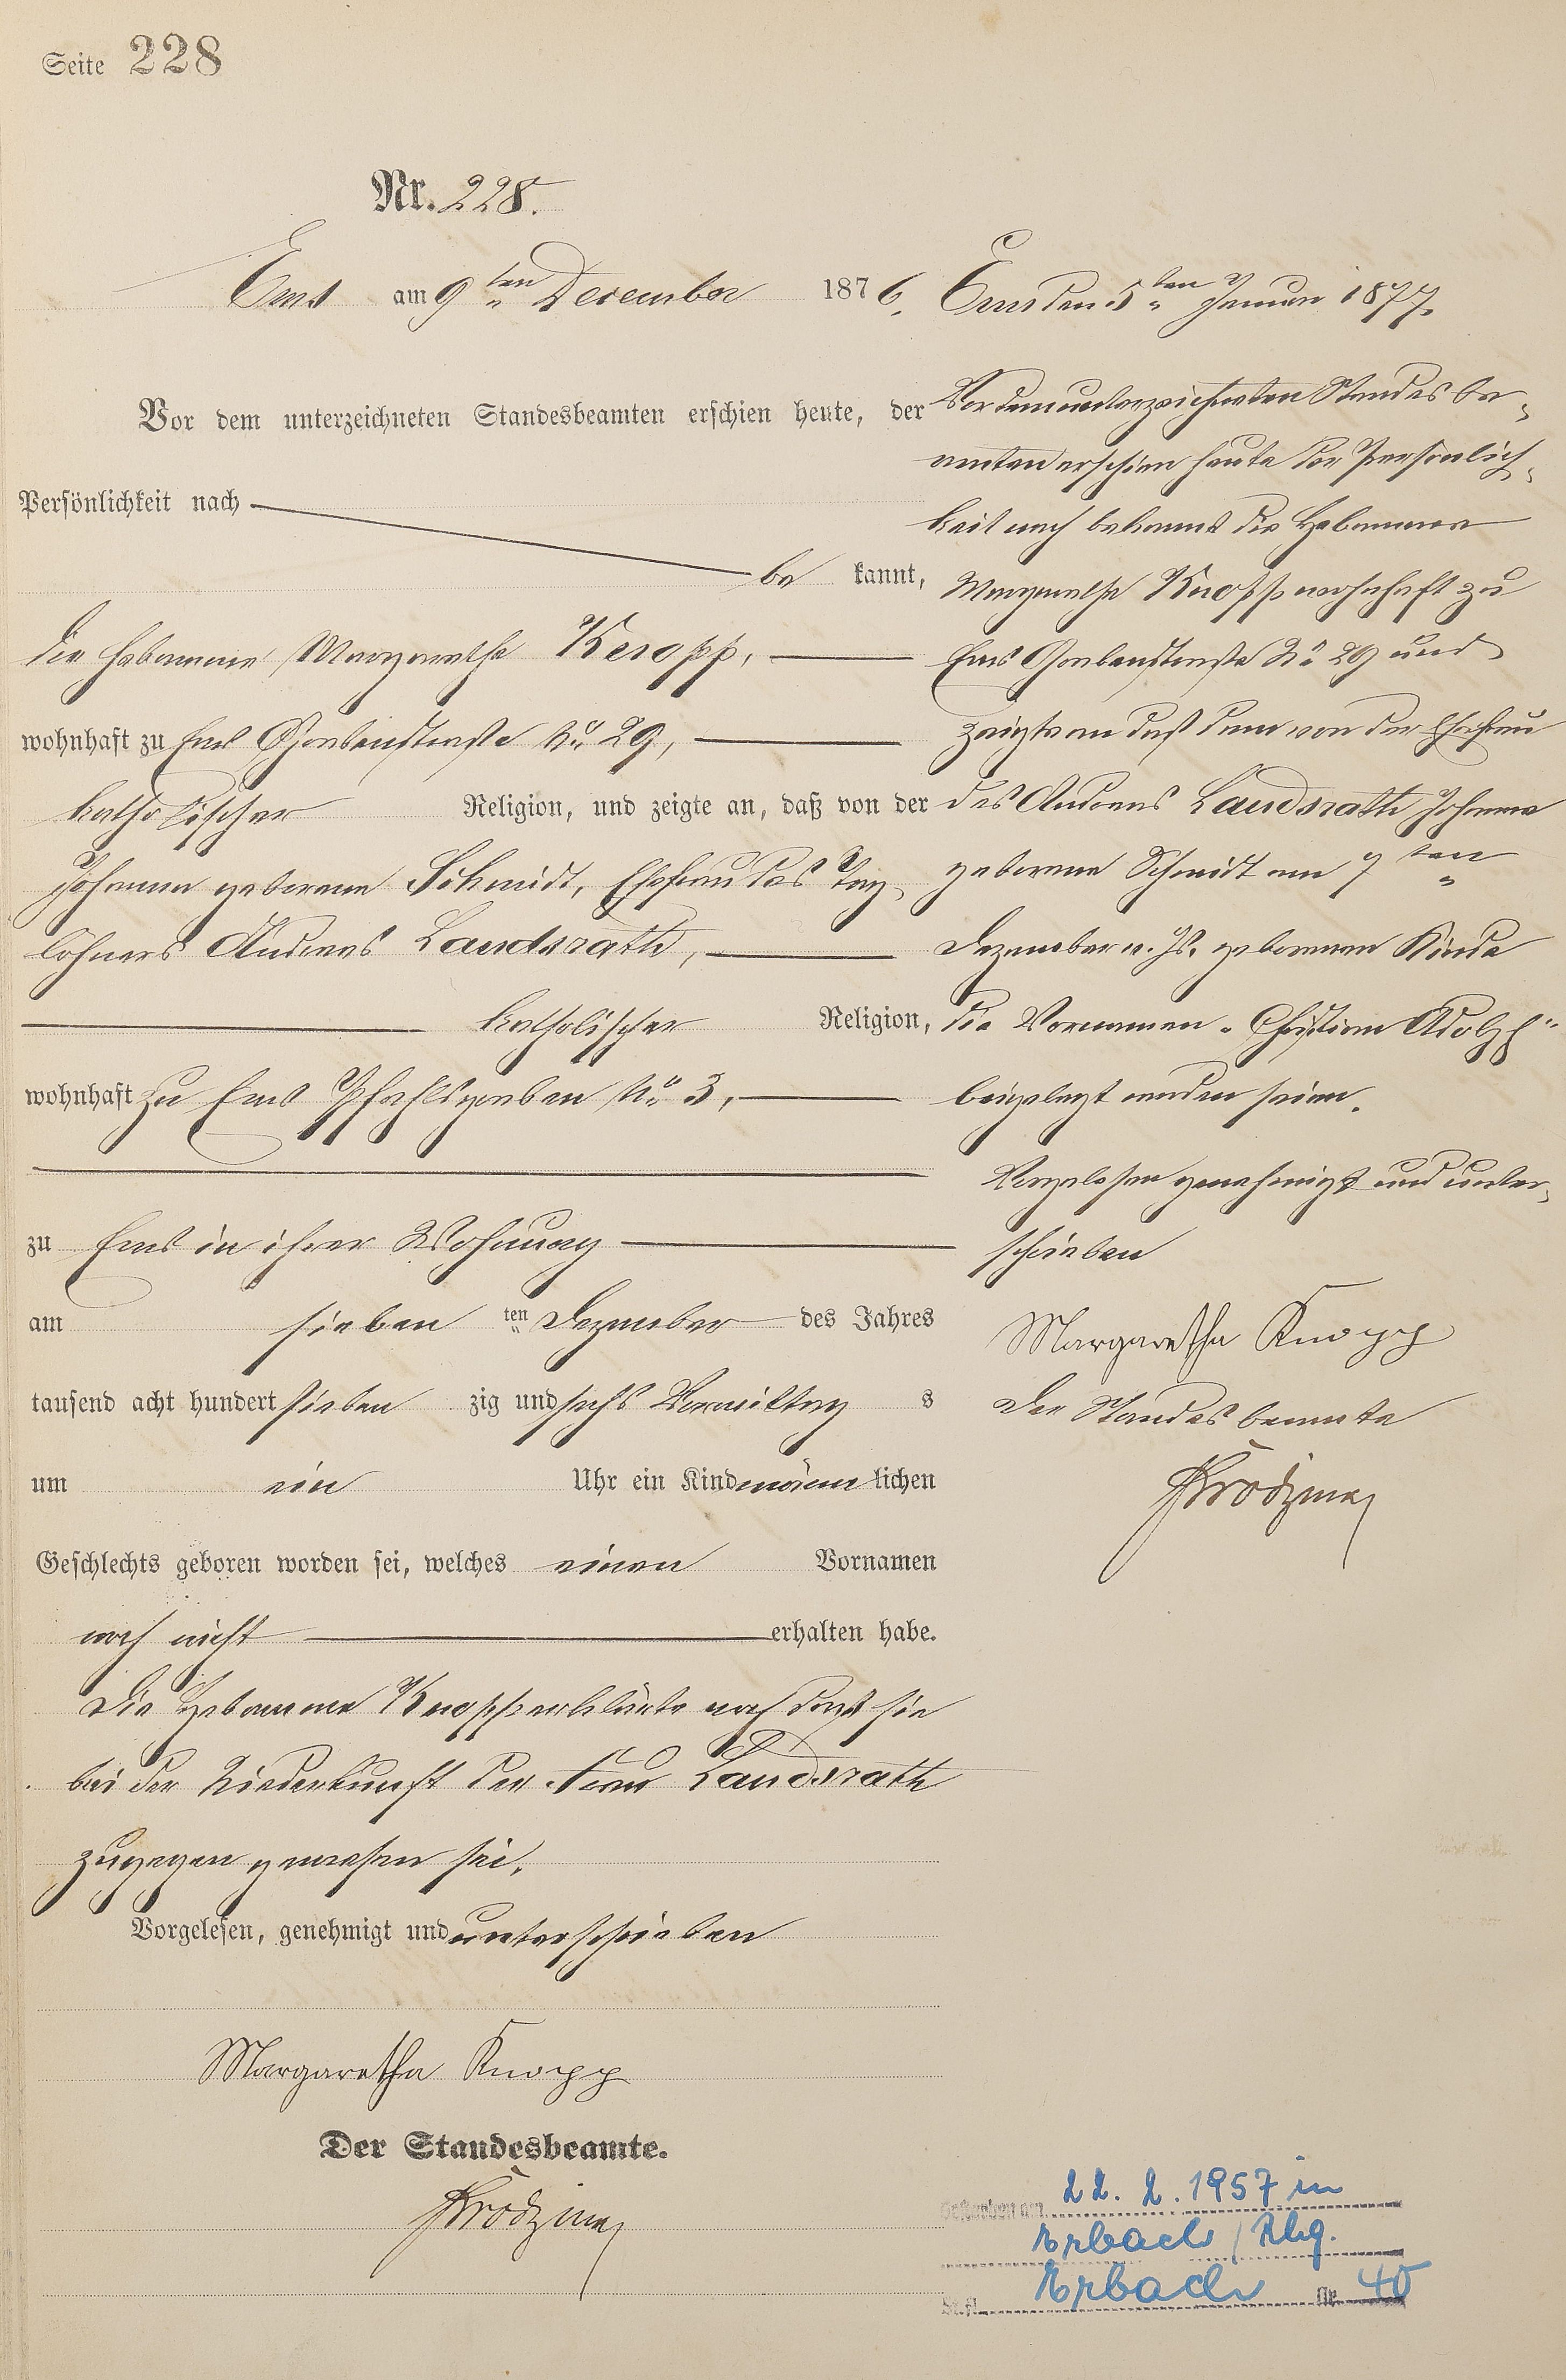 Seite 228
Nr. 228.
Ems am 9ten December 1876.
Vor dem unterzeichneten Standesbeamten erschien heute, der
Persönlichkeit nach
be kannt,
die Hebamme Margarethe Knopp,
wohnhaft zu Ems Grabenstraße No 29,
katholischer Religion, und zeigte an, daß von der
Johanna geborene Schmidt, Ehefrau des Tag-
löhners Andreas Landsrath,
katholischer Religion,
wohnhaft zu Ems Pfahlgraben No 3,
zu Ems in ihrer Wohnung
am sieben ten Dezember des Jahres
tausend acht hundert sieben zig und sechs Vormittag s
um ein Uhr ein Kind männ lichen
Geschlechts geboren worden sei, welches einen Vornamen
noch nicht erhalten habe.
Die Hebamme Knopp erklärte noch daß sie
bei der Niederkunft der Frau Landsrath
zugegen gewesen sei.
Vorgelesen, genehmigt und unterschrieben
Margaretha Knopp
Der Standesbeamte.
Ems den 5ten Januar 1877.
Vor dem unterzeichneten Standesbe-
amten erschien heute der Persönlich-
keit nach bekannt die Hebamme
Margarethe Knopp wohnhaft zu
Ems Grabenstraße No 29 und
zeigte an daß dem von der Ehefrau
des Andreas Landsrath Johanna
geborene Schmidt am 7ten
Dezember v. Js. geborenen Kinde
die Vornamen "Christian Adolph"
beigelegt worden seien.
Vorgelesen genehmigt und unter-
schrieben
Margaretha Knopp
Der Standesbeamte
Gestorben am 22. 2. 1957 in
Erbach / Rhg.
St.A. Erbach Nr. 40